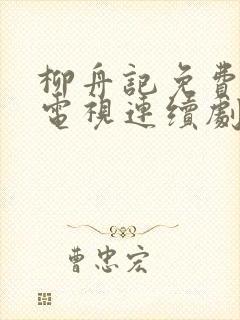 柳舟記免費
電視連續劇
曹忠宏